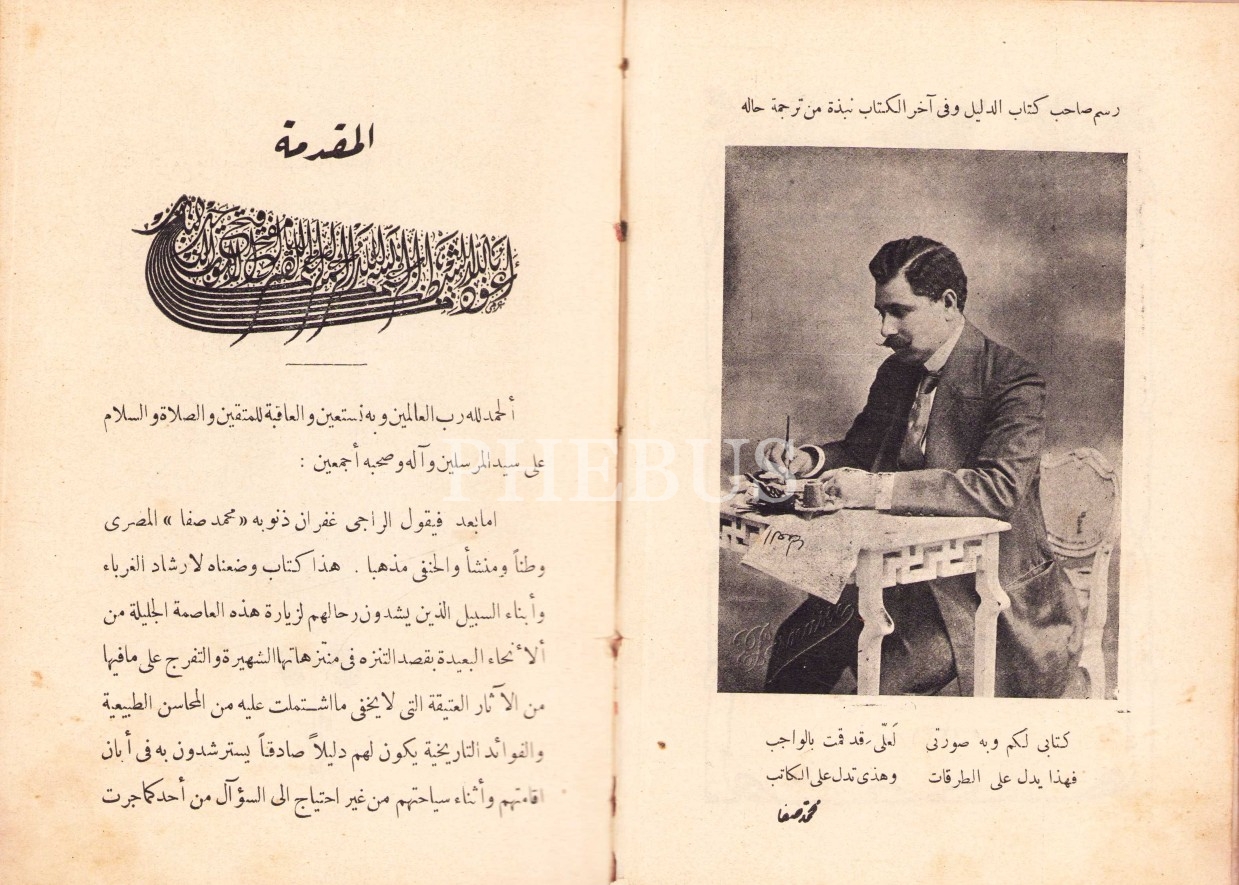 رسم صاحب كتاب الدليل وفى آخر الكتاب نبذة من ترجمة حاله
كتابى لكم وبه صورتى لعلّى قد قمت بالواجب
فهذا يدل على الطرقات وهذى تدل على الكاتب
محمد صفا
المقدمة
ألحمد لله رب العالمين وبه نستعين والعاقبة للمتقين والصلاة والسلام
على سيد المرسلين وآله وصحبه أجمعين :
اما بعد فيقول الراجى غفران ذنوبه «محمد صفا» المصرى
وطناً ومنشأ والحنفى مذهبا . هذا كتاب وضعناه لارشاد الغرباء
وأبناء السبيل الذين يشدون رحالهم لزيارة هذه العاصمة الجليلة من
ألأنحاء البعيدة بقصد التنزه فى منتزهاتها الشهيرة والتفرج على مافيها
من الآثار العتيقة التى لايخفى مااشتملت عليه من المحاسن الطبيعية
والفوائد التاريخية يكون لهم دليلاً صادقاً يسترشدون به فى أبان
اقامتهم وأثناء سياحتهم من غير احتياج الى السؤآل من أحد كما جرت
PHEBUS